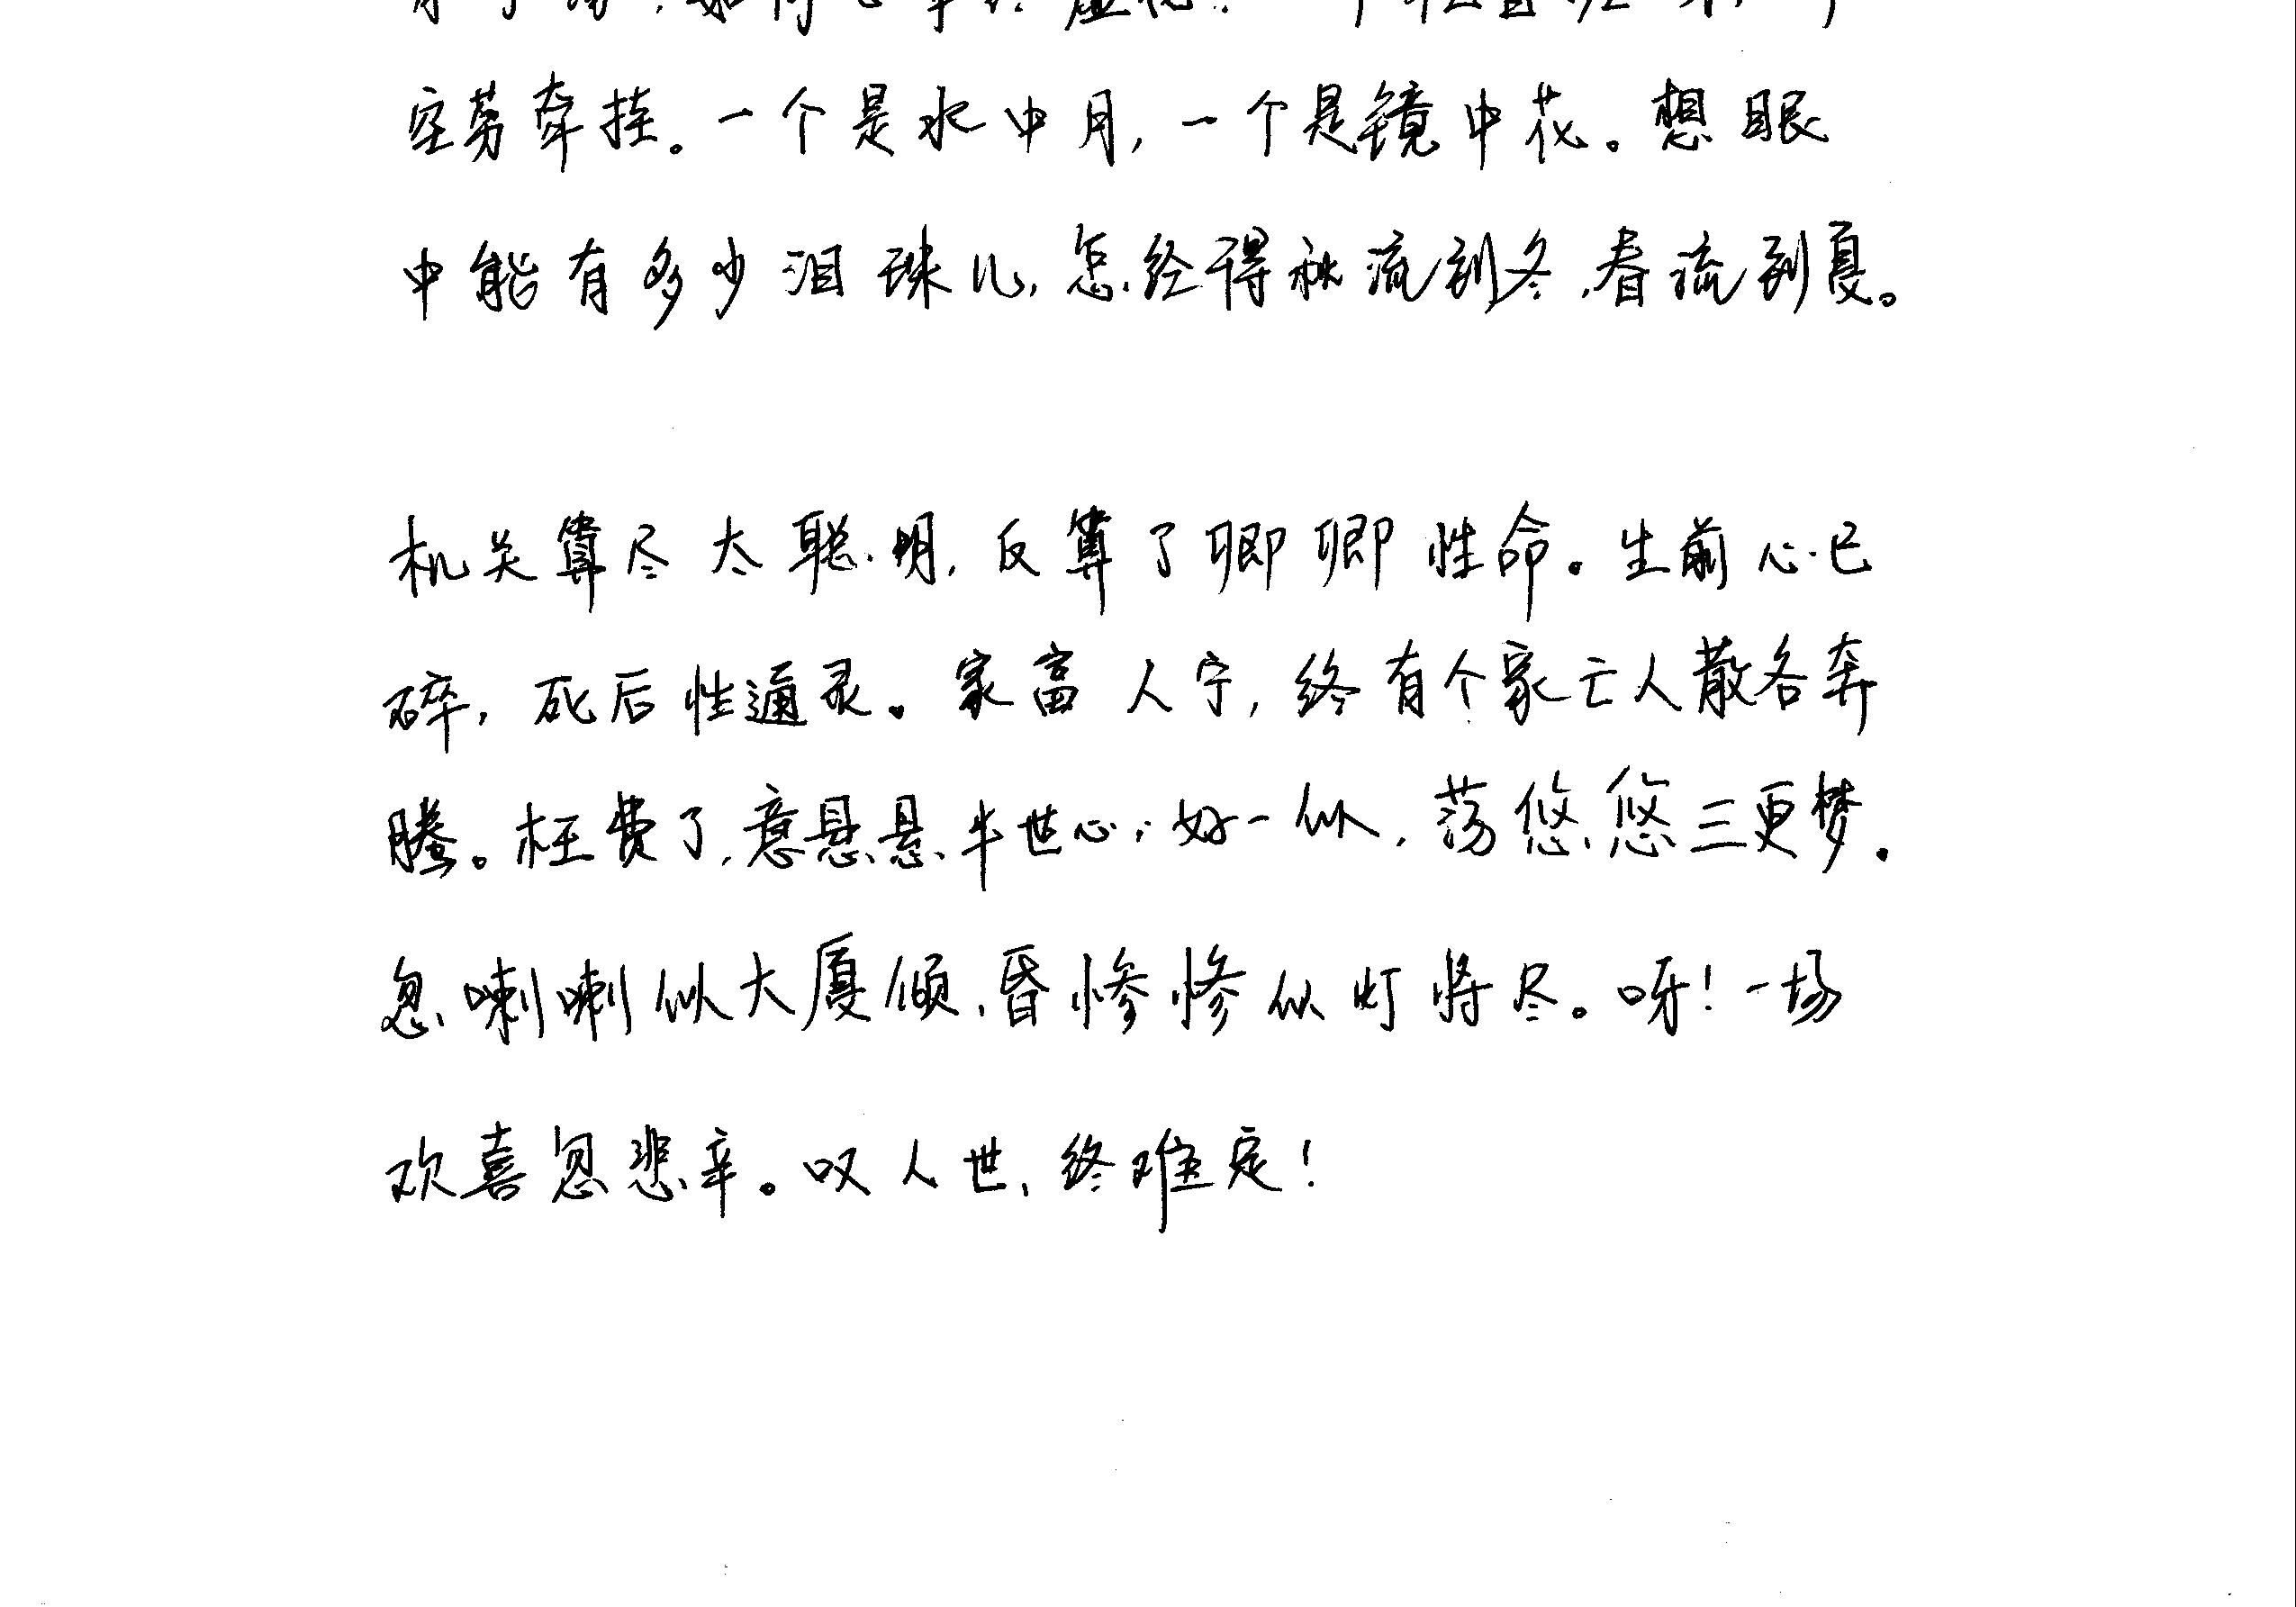 空劳牵挂。一个是水中月，一个是镜中花。想眼
中能有多少泪珠儿，怎经得秋流到冬，春流到夏。
机关算尽太聪明，反算了卿卿性命。生前心已
碎，死后性通灵。家富人宁，终有个家亡人散各奔
腾。枉费了，意悬悬半世心；好一似，荡悠悠三更梦。
忽喇喇似大厦倾，昏惨惨似灯将尽。呀！一场
欢喜忽悲辛。叹人世，终难定！